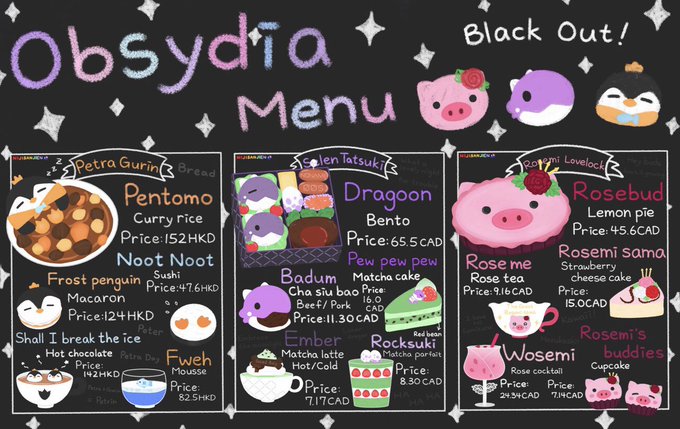 Obsydia
Menu
Black Out!
NIJISANJI EN
Petra Gurin
Bread
Pentomo
Curry rice
Price: 152HKD
Noot Noot
Sushi
Price: 47.6HKD
Frost penguin
Macaron
Price: 124HKD
Peter
Shall I break the ice
Hot chocolate
Price:
142HKD
Petra Dey
Fweh
Mousse
Price:
82.5HKD
NIJISANJI EN
Selen Tatsuki
Dragoon
Bento
Price: 65.5CAD
Pew pew pew
Matcha cake
Price:
16.0
CAD
Badum
Cha siu bao
Beef/ Pork
Price: 11.30CAD
Ember
Matcha latte
Hot/Cold
Price:
7.17CAD
Red bean
Rocksuki
Matcha parfait
Price:
8.30CAD
HA
HA HA
NIJISANJI EN
Rosemi Lovelock
Rosebud
Lemon pie
Price: 45.6CAD
Rose me
Rose tea
Price: 9.16 CAD
Rosemi sama
Strawberry
cheese cake
Price:
15.0CAD
Kawaii!
Wosemi
Rose cocktail
Price:
24.34CAD
Rosemi's
buddies
Cupcake
Price:
7.14CAD